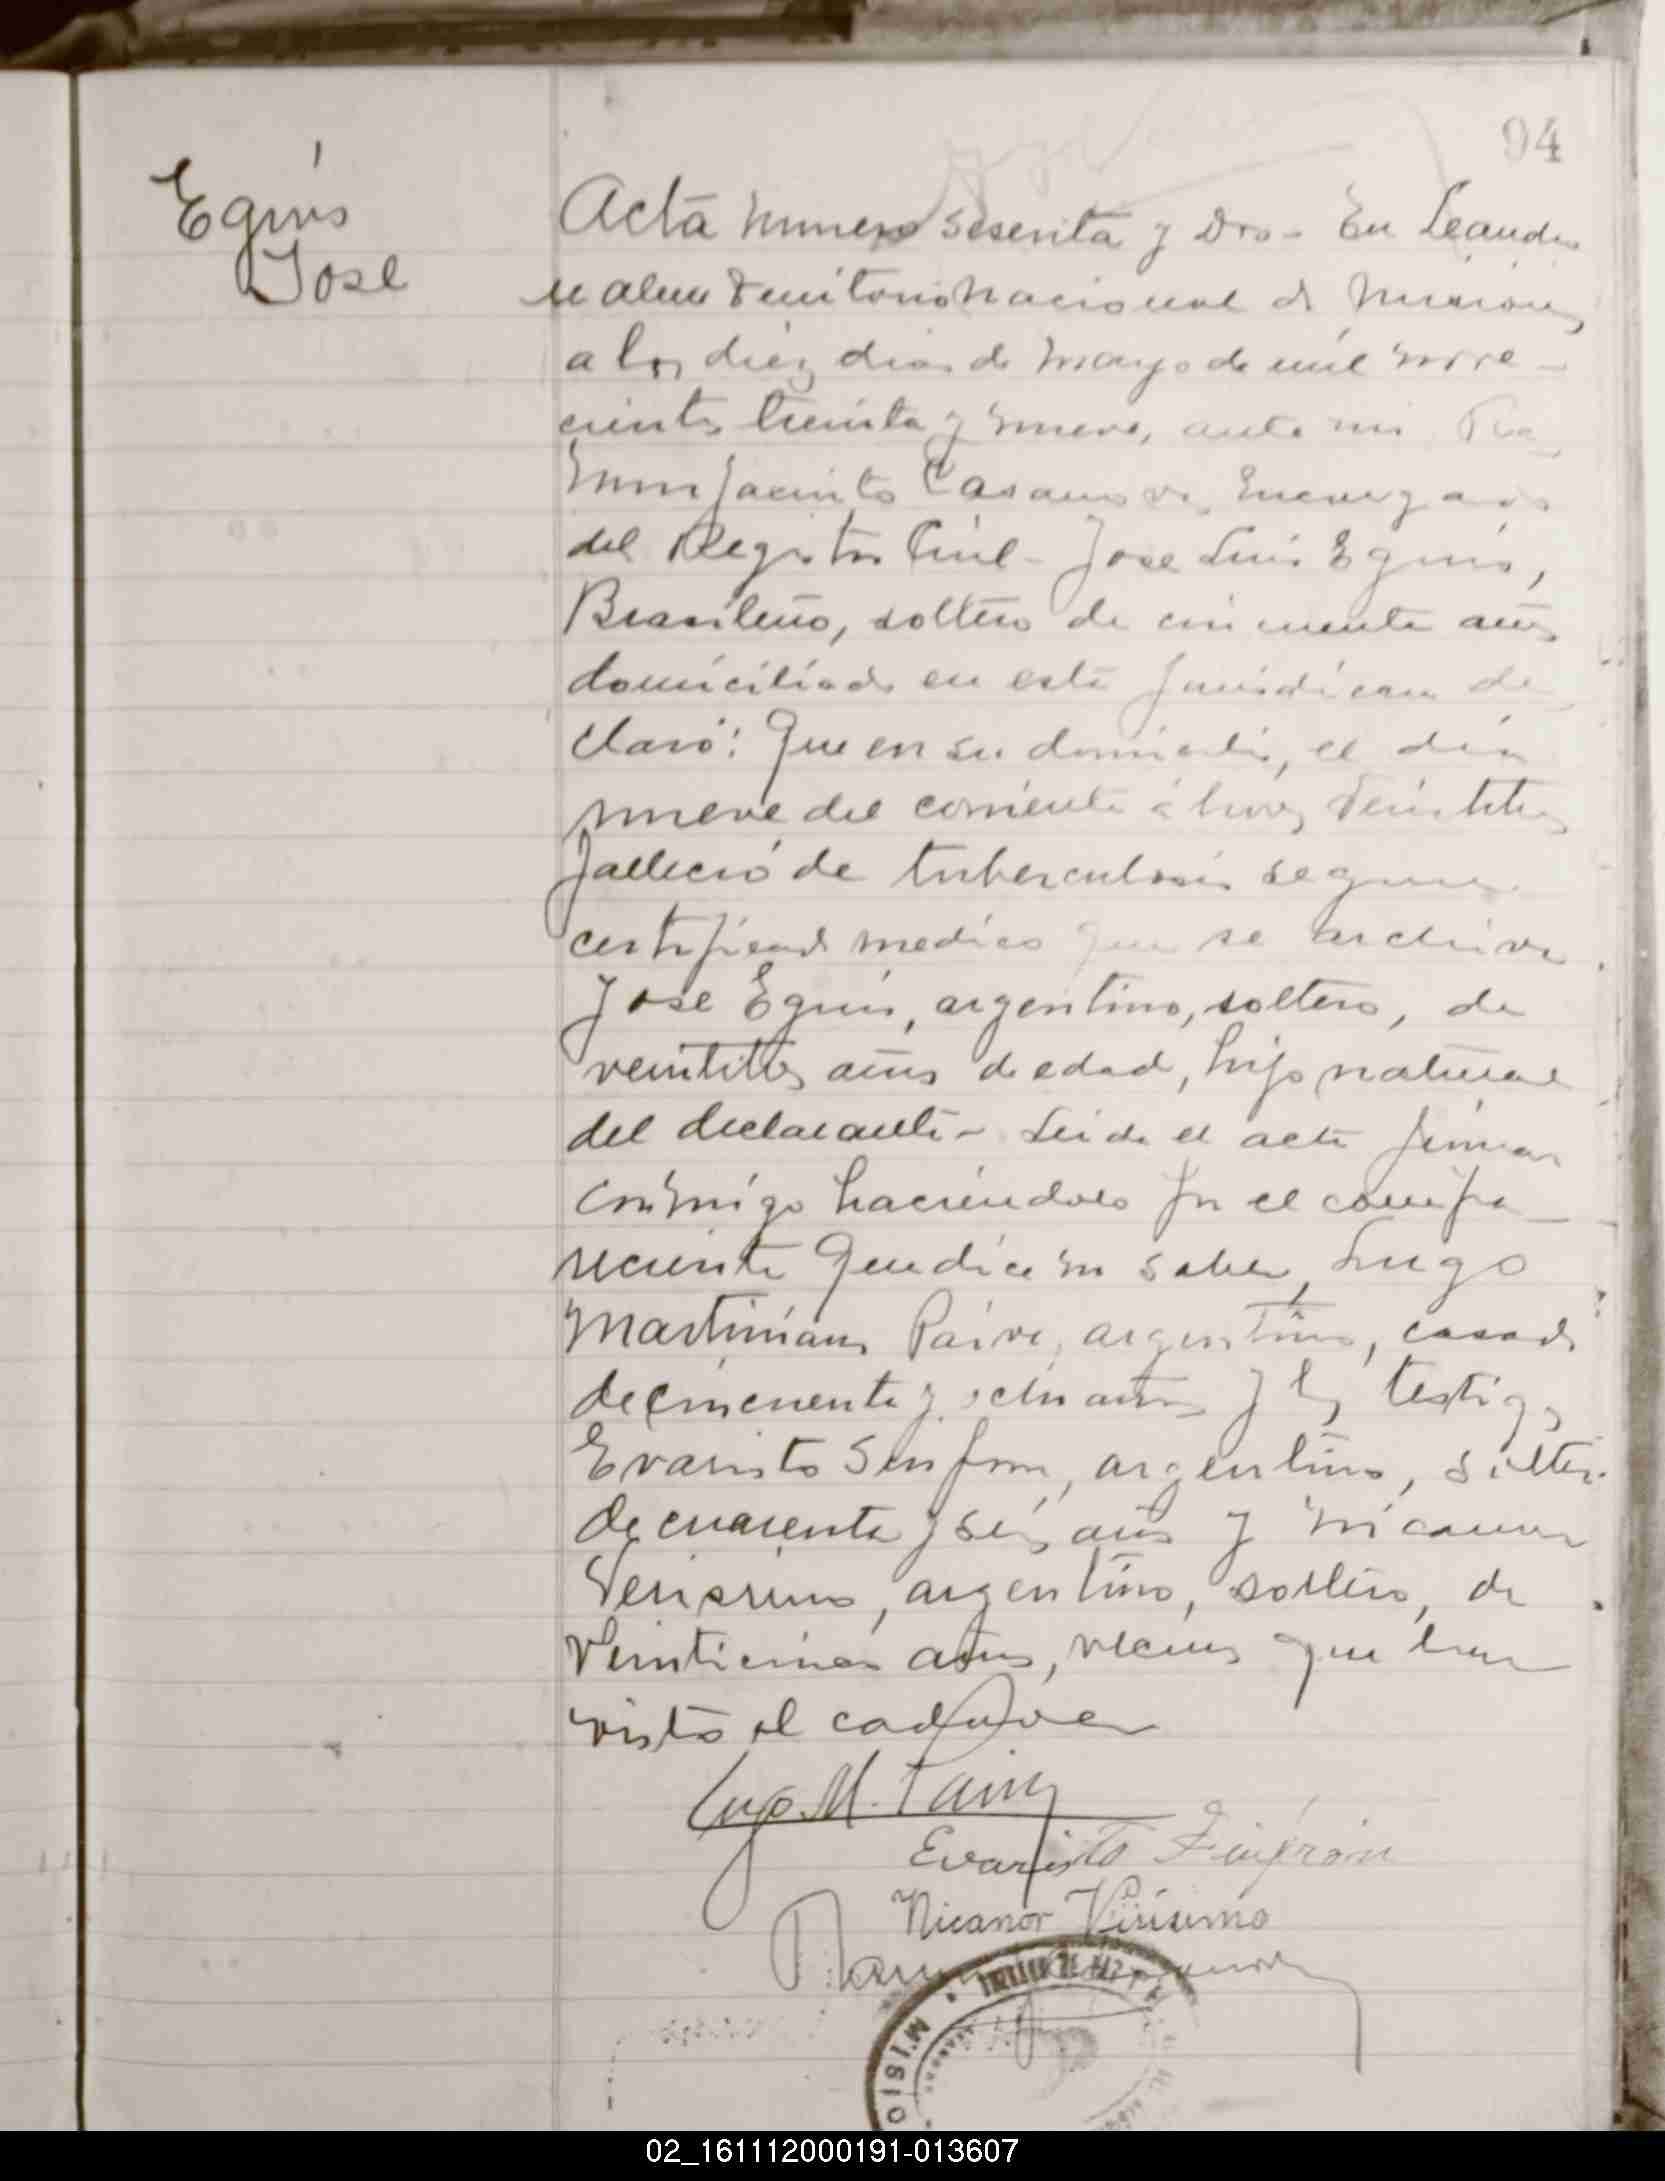 94
Eguis
José
Acta numero sesenta y dos - En Leandro
N alem Territorio Nacional de Misiones
a los diez dias de Mayo de mil nove-
cientos treinta y nueve, ante mi Ra-
mon Jacinto Casanova, Encargado
del Registro Civil - Jose Luis Eguis,
Brasileño, soltero de cincuenta años
domiciliado en esta Jurisdiccion de
claró: Que en su domicilio, el dia
nueve del corriente á horas veintitres
falleció de tuberculosis segun
certificado medico que se archiva
Jose Eguis, argentino, soltero, de
veintitres años de edad, hijo natural
del declarante - Leida el acta firman
conmigo haciendolo por el compa-
reciente que dice no saber, Lugo
Martiniano Paiva, argentino, casado
de cincuenta y ocho años y los testigos
Evaristo Sinfron, argentino, soltero
de cuarenta y seis años y Nicanor
Verisimo, argentino, soltero, de
veinticinco años, vecinos que han
visto el cadaver
Lugo M. Paiva
Evaristo Sinfrón
Nicanor Virisimo
MISIO
02_161112000191-013607